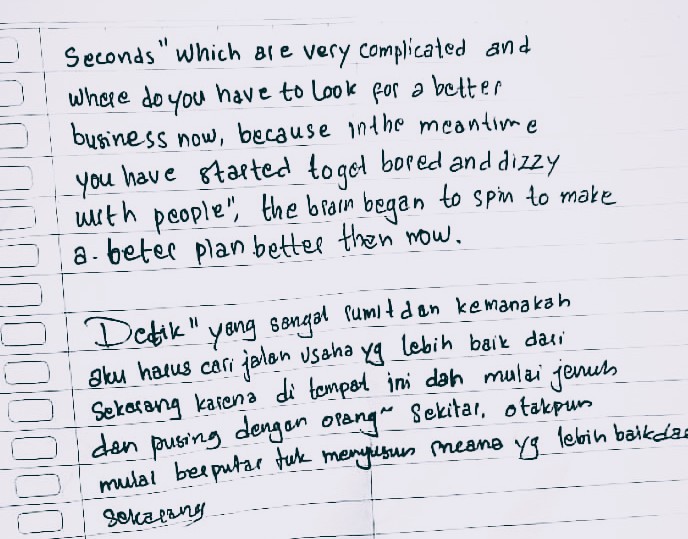 Seconds" which are very complicated and
where do you have to look for a better
business now, because in the meantime
you have started to get bored and dizzy
with people", the brain began to spin to make
a. beter plan better then now.
Detik" yang sangat rumit dan kemanakah
aku harus cari jalan usaha yg lebih baik dari
Sekarang karena di tempat ini dah mulai jenuh
dan pusing dengan orang~ Sekitar, otakpun
mulai berputar tuk menyusun rncana yg lebih baik dari
Sekarang